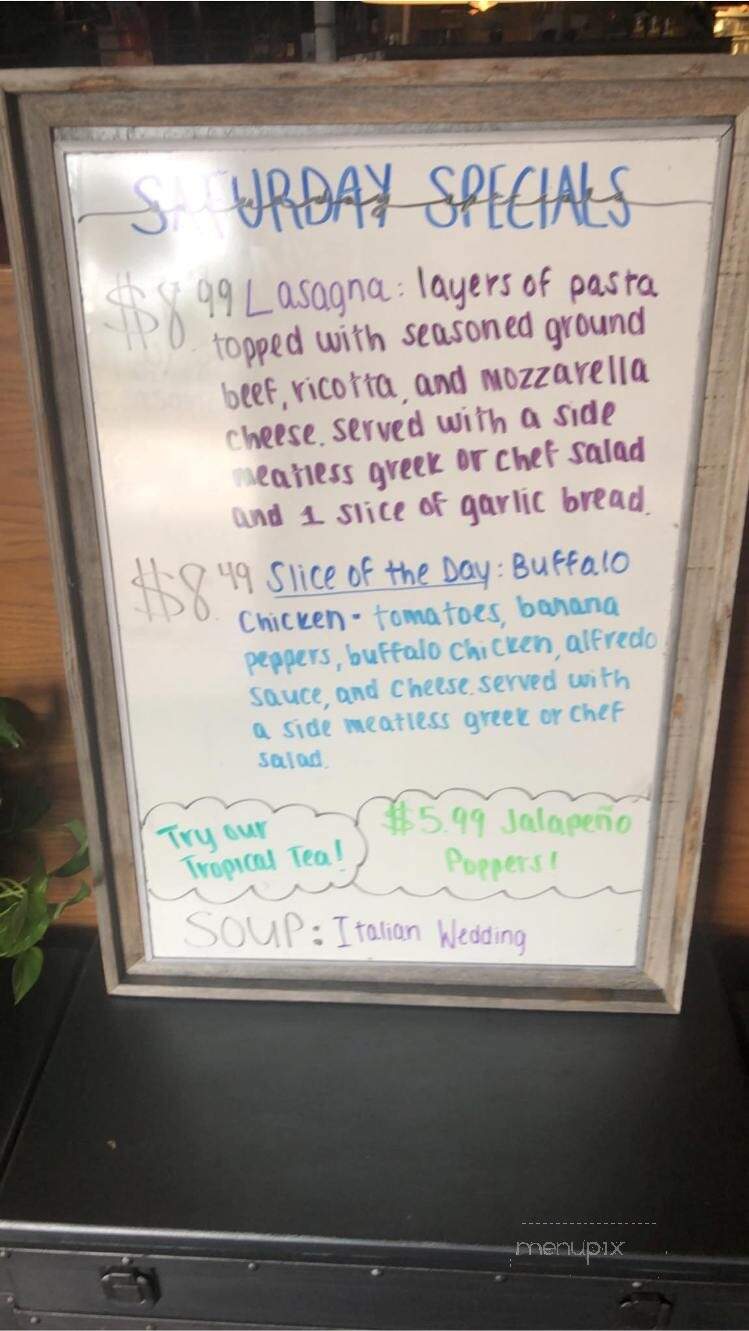 SATURDAY SPECIALS
$8.99 Lasagna: layers of pasta
topped with seasoned ground
beef, ricotta, and mozzarella
cheese. served with a side
meatless greek or chef salad
and 1 slice of garlic bread.
$8.49 Slice of the Day: Buffalo
Chicken - tomatoes, banana
peppers, buffalo chicken, alfredo
sauce, and cheese. served with
a side meatless greek or chef
salad.
Try our
Tropical Tea!
$5.99 Jalapeño
Poppers!
SOUP: Italian Wedding
menupix